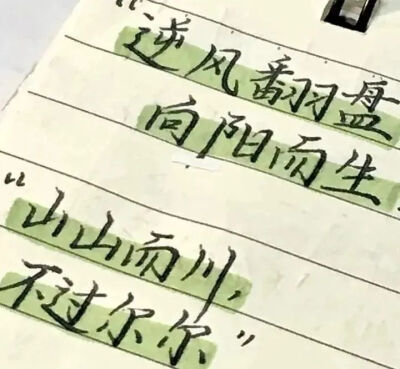 “逆风翻盘
向阳而生.
“山山而川,
不过尔尔”